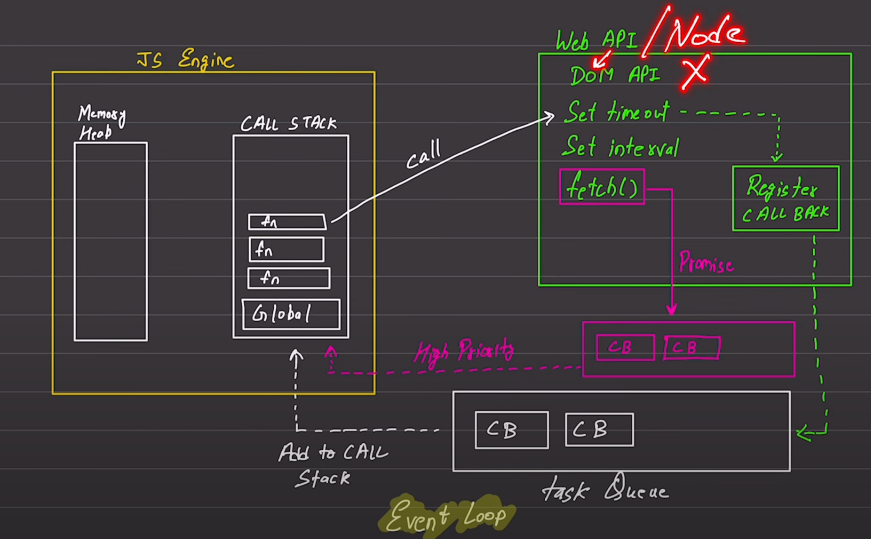 JS Engine
Memory
Heap
CALL STACK
fn
fn
fn
Global
call
Web API /Node
DOM API X
Set timeout
Set interval
fetch()
Register
CALL BACK
Promise
CB CB
High Priority
CB CB
Add to CALL
Stack
task Queue
Event Loop